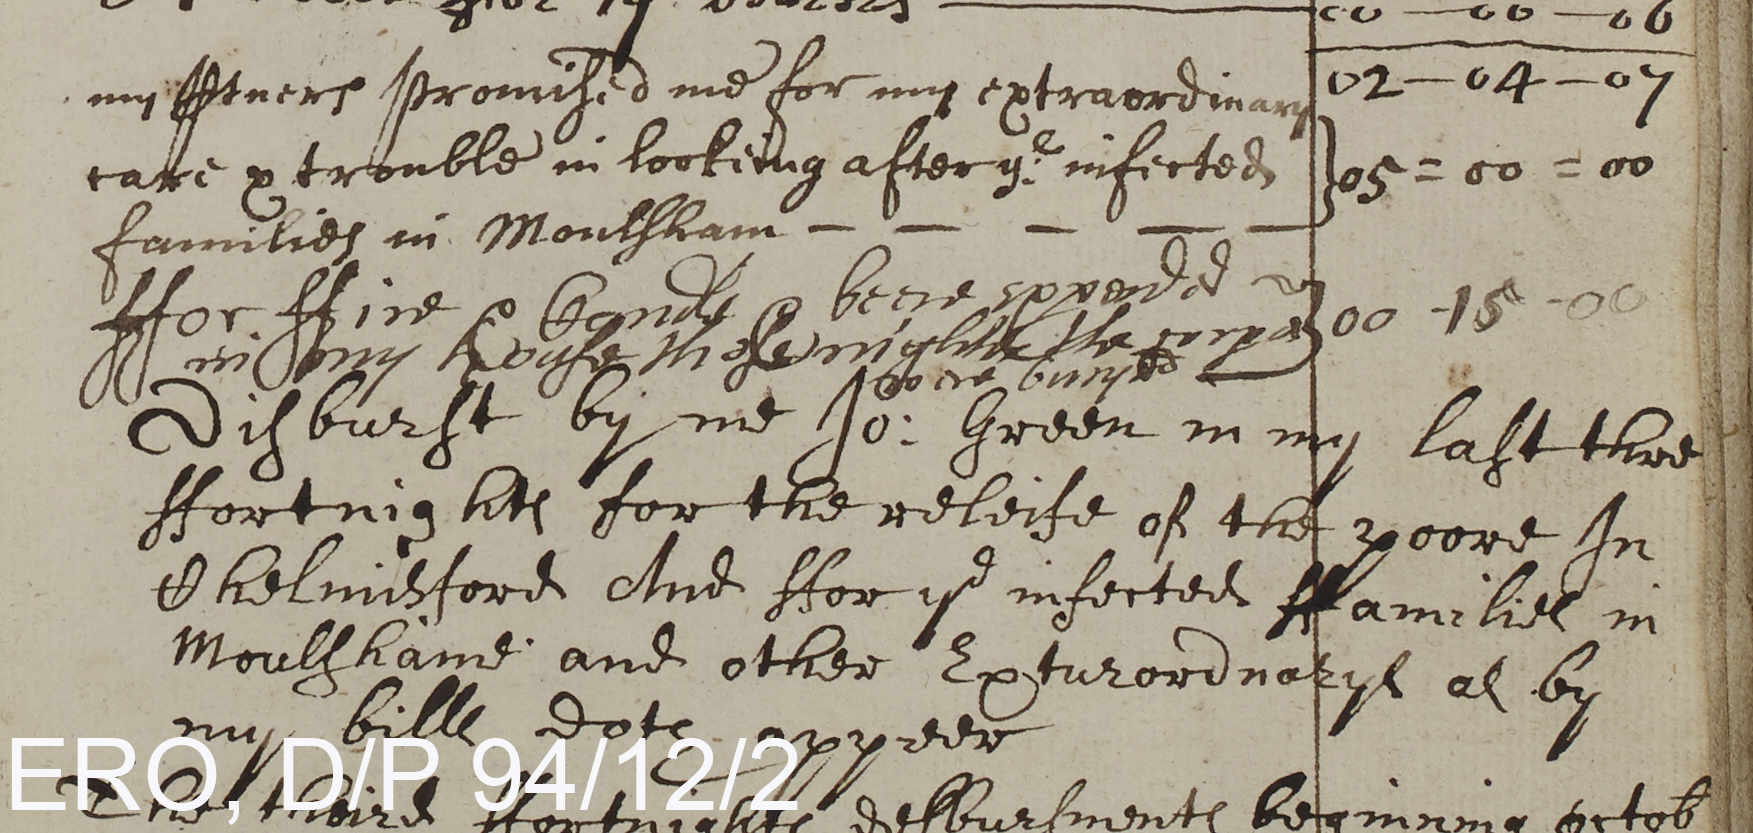 for 19 00 - 00 - 06
02 - 04 - 07
my ptners promised me for my extraordinary
care & trouble in looking after ye infected } 05 = 00 = 00
families in Moulsham - - - - -
ffor ffire & Candls beere spended
in my house those nights the corps } 00 - 15 - 00
were buryed
Disburst by me Jo: Green in my last thre
ffortnights for the releife of the poore In
Chelmisford And ffor ye infected ffamilies in
Moulshame and other Exturordnarys as by
my bills dote appeer
ERO, D/P 94/12/2
The third ffortnights desbursments beginning octob